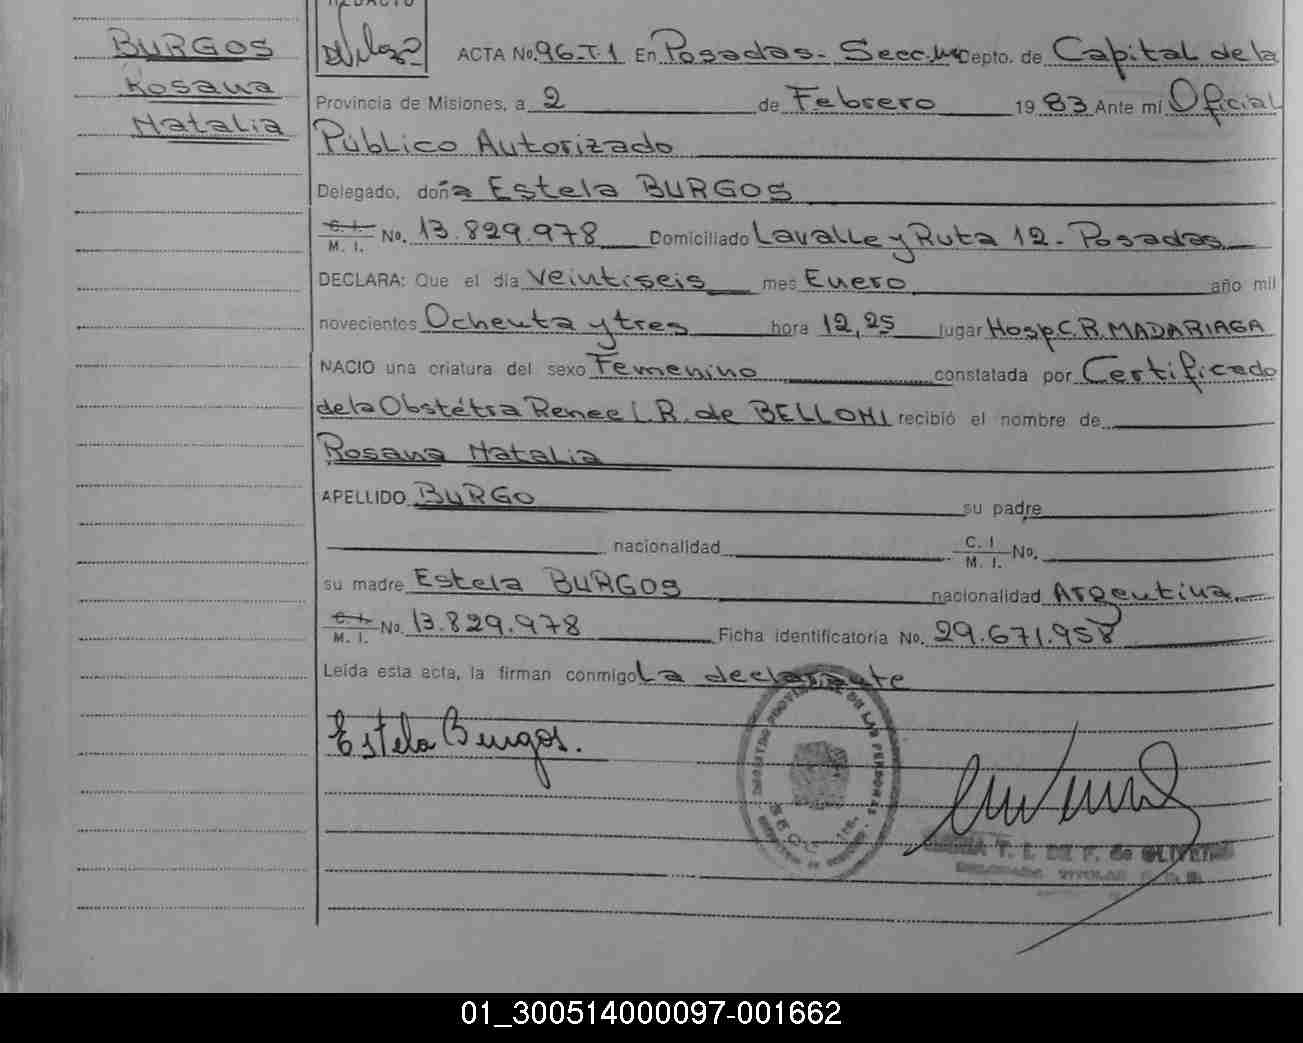 BURGOS
Rosana
Natalia
ACTA No. 96-T.1 En Posadas- Secc. Depto. de Capital de la
Provincia de Misiones, a 2 de Febrero 1983 Ante mí Oficial
Público Autorizado
Delegado, doña Estela BURGOS
C. I. M. I. No. 13.829.978 Domiciliado Lavalle y Ruta 12- Posadas
DECLARA: Que el día veintiseis mes Enero año mil
novecientos Ochenta y tres hora 12,25 lugar Hosp. C. R. MADARIAGA
NACIO una criatura del sexo Femenino constatada por Certificado
de la Obstétra Renee L. R. de BELLONI recibió el nombre de
Rosana Natalia
APELLIDO BURGO su padre
nacionalidad C. I. M. I. No.
su madre Estela BURGOS nacionalidad Argentina
C. I. M. I. No. 13.829.978 Ficha identificatoria No. 29.671.958
Leída esta acta, la firman conmigo La declarante
Estela Burgos.
DE LAS PERSONAS
T. I. DE F. de OLIVEIRA
01_300514000097-001662